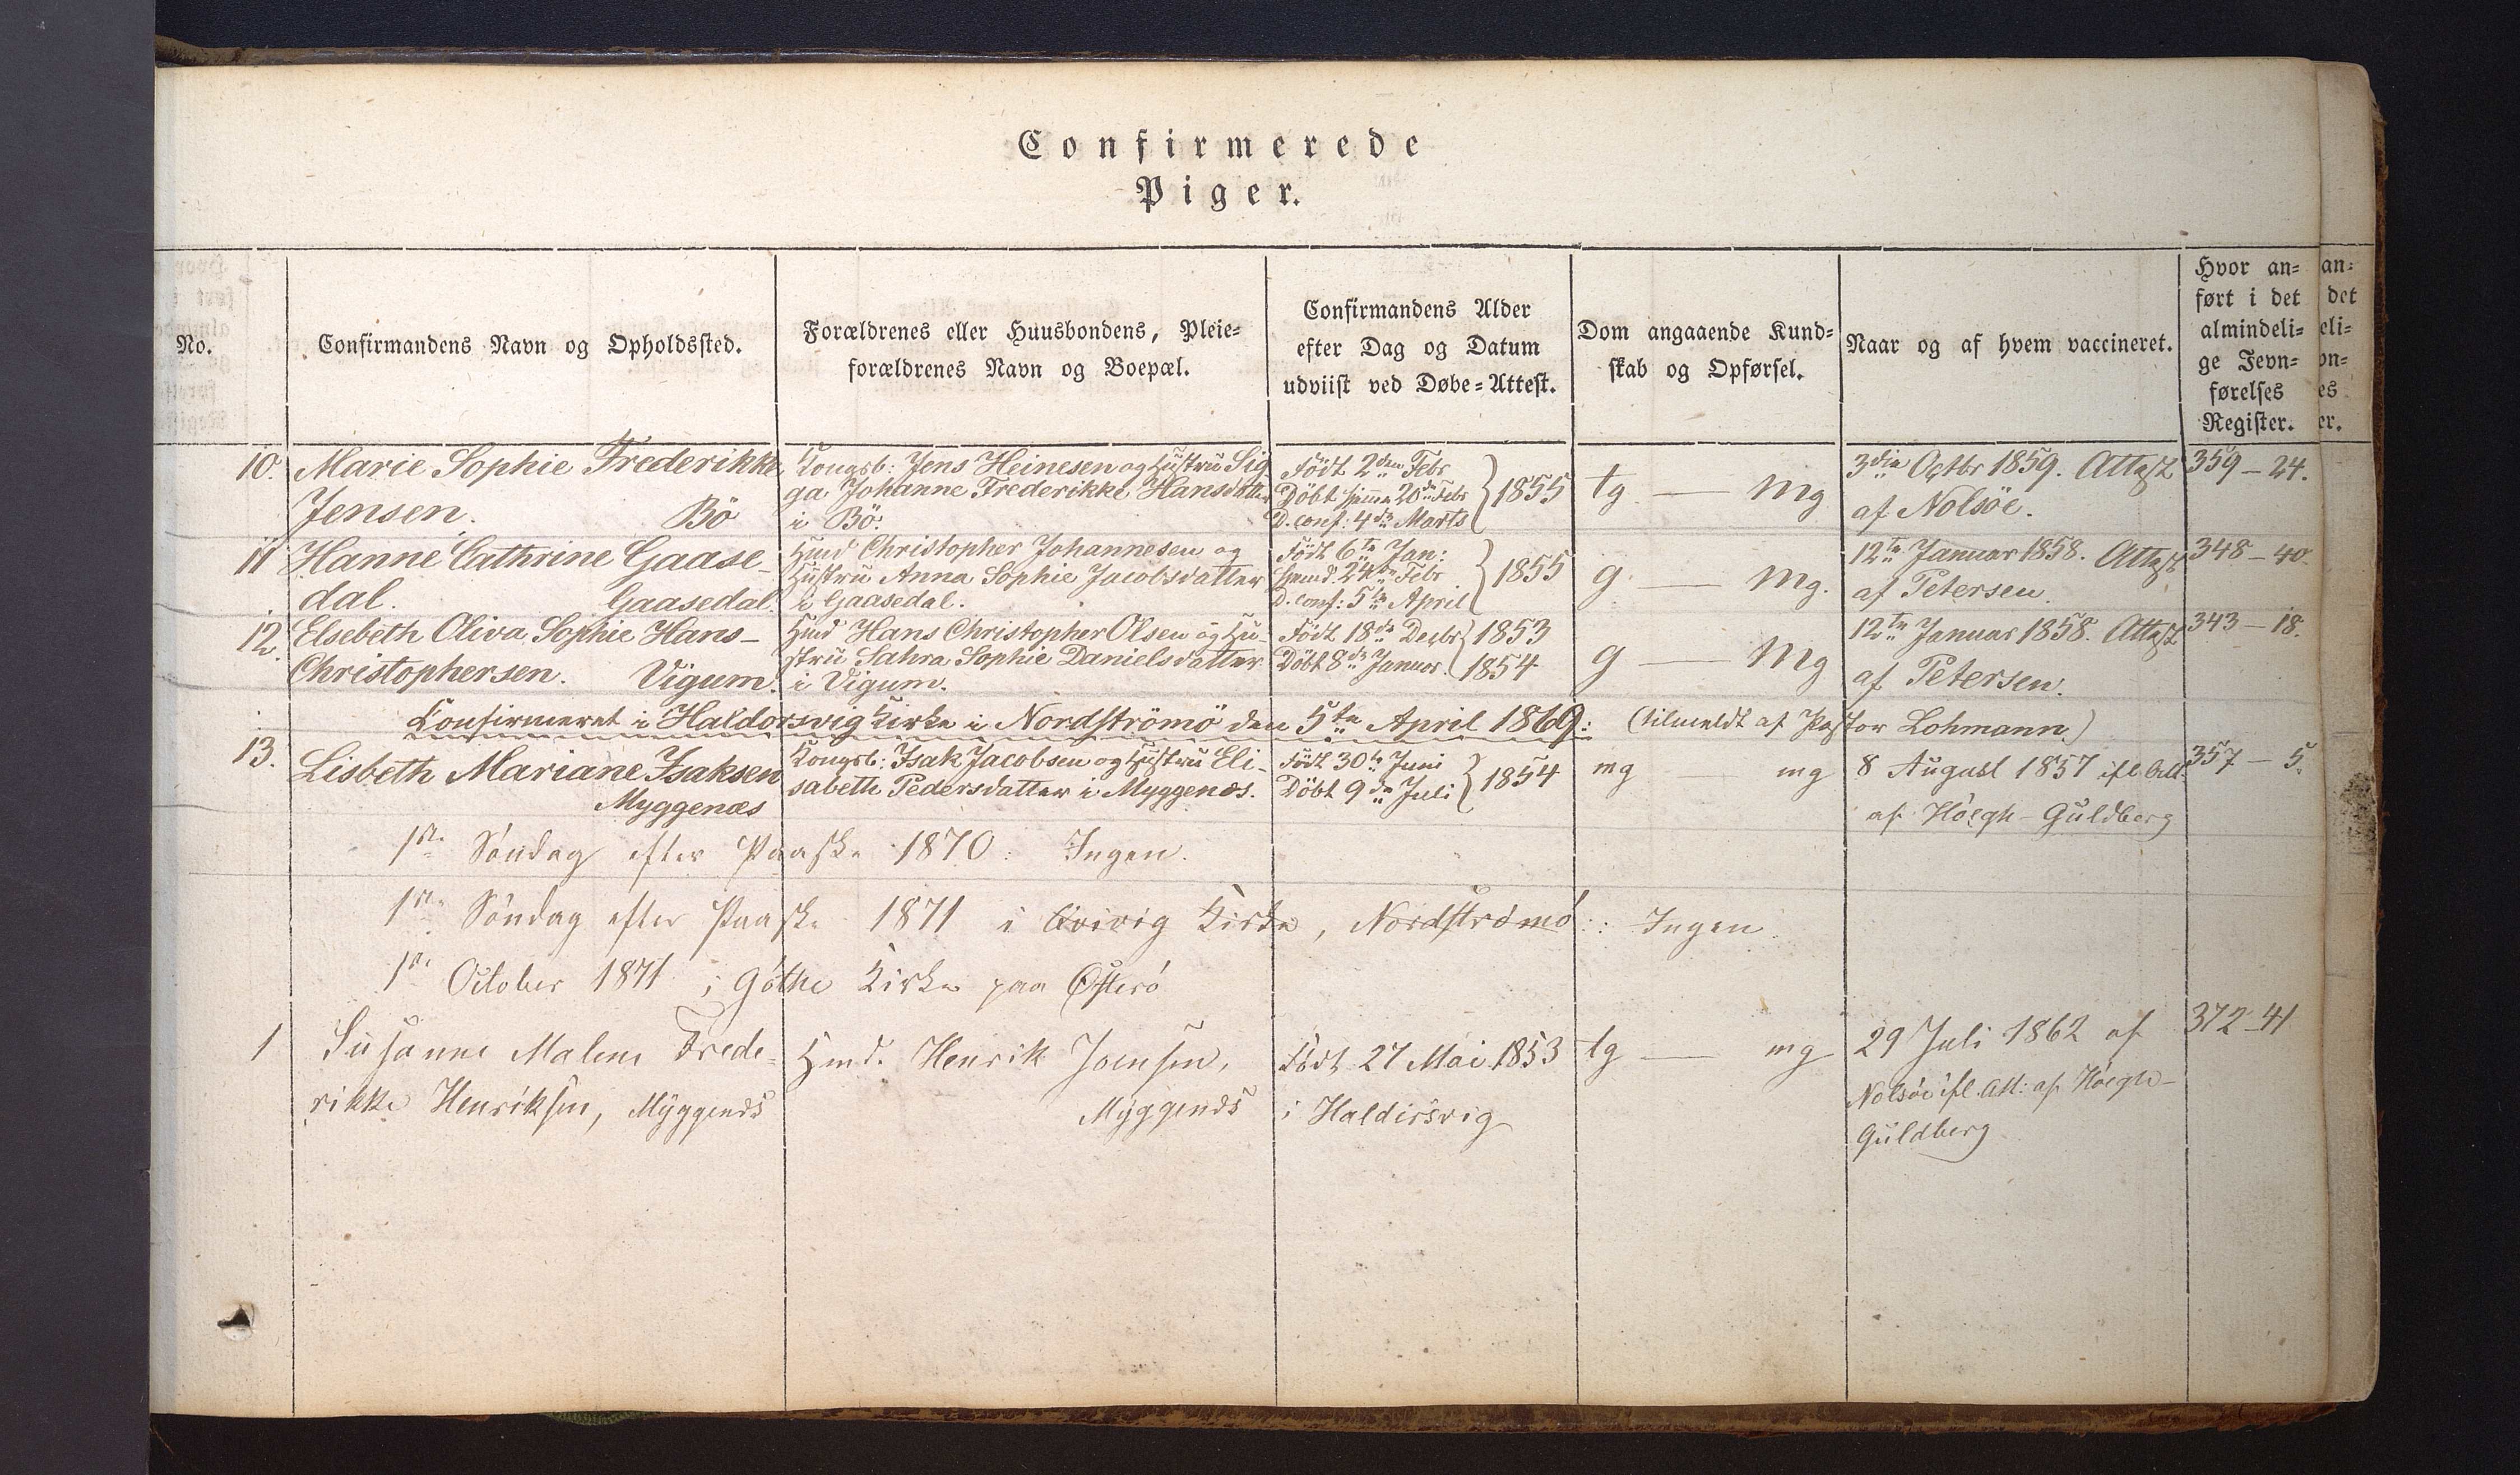 Confirmerede
Piger.
No.
Confirmandens Navn og Opholdssted.
Forældrenes eller Huusbondens, Pleie=
forældrenes Navn og Boepæl.
Confirmandens Alder
efter Dag og Datum
udviist ved Døbe=Attest.
Dom angaaende Kund=
skab og Opførsel.
Naar og af hvem vaccineret.
Hvor an=
ført i det
almindeli=
ge Jevn=
førelses
Register.
an=
det
eli=
vn=
es
er.
10.
Marie Sophie Frederikke
Jensen. Bö
Kongsb: Jens Heinesen og Hustru Sig
ga Johanne Frederikke Hansdatter
i Bö.
Födt 2den Febr
Döbt hjemme 20de Febr
D. conf: 4de Marts
1855
tg — mg
3die Octbr 1859. Attest
af Nolsöe.
359 - 24.
11
Hanne Cathrine Gaase-
dal. Gaasedal.
Hmd Christopher Johannesen og
Hustru Anna Sophie Jacobsdatter
i Gaasedal.
Födt 6te Jan:
hjemd. 24de Febr
D. conf: 5te April
1855
g — mg.
12te Januar 1858. Attest
af Petersen.
348 - 40.
12.
Elsebeth Oliva Sophie Hans-
Christophersen. Vigum.
Hmd Hans Christopher Olsen og Hu-
stru Sahra Sophie Danielsdatter
i Vigum.
Födt 18de Decbr 1853
Döbt 8de Januar. 1854
g — mg
12te Januar 1858. Attest
af Petersen.
343 - 18.
Confirmeret i Haldorsvig Kirke i Nordströmö den 5te April 1869: (tilmeldt af Pastor Lohmann.)
13.
Lisbeth Mariane Isaksen
Myggenæs
Kongsb: Isak Jacobsen og Hustru Eli-
sabeth Pedersdatter i Myggenæs.
Födt 30te Juni
Döbt 9de Juli
1854
mg — mg
8 August 1857 ifl. Att.
af Höegh-Guldberg
357 - 5.
1ste Söndag efter Paaske 1870: Ingen.
1ste Söndag efter Paaske 1871 i Qvivig Kirke, Nordströmö: Ingen.
1ste October 1871 i Göthe Kirke paa Österö
1
Susanne Malene Frede-
rikke Henriksen, Myggenæs
Hmd. Henrik Joensen,
Myggenæs
Födt 27 Mai 1853
i Haldirsvig
tg — mg
29 Juli 1862 af
Nolsöe ifl. Att: af Höegh-
Guldberg
372 - 41